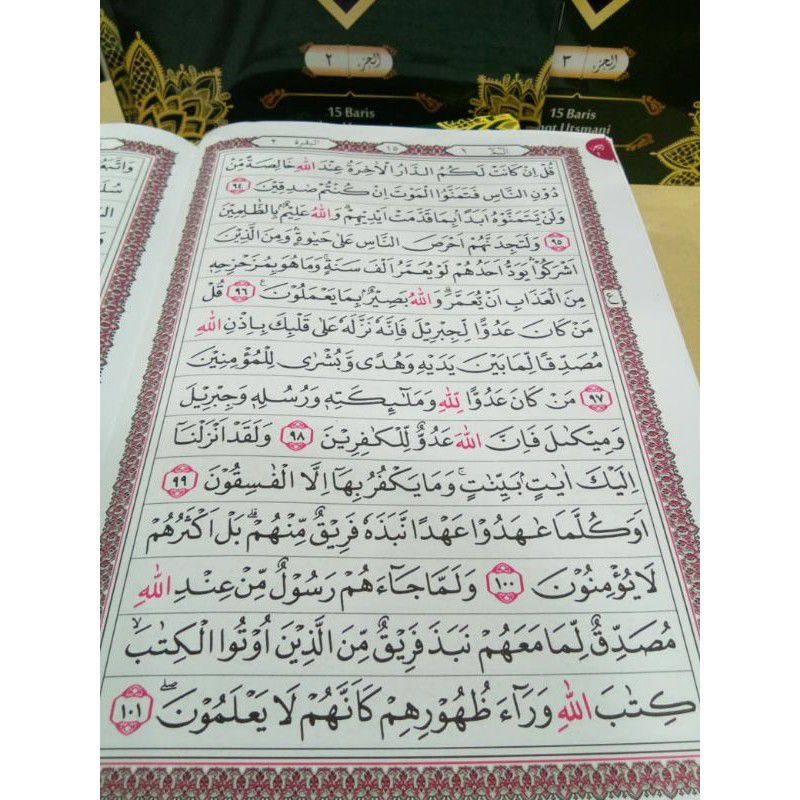 الجزء ٢
15 Baris
الجزء ٣
15 Baris
Utsmani
١٥ البقرة ٢
قُلْ اِنْ كَانَتْ لَكُمُ الدَّارُ الْاٰخِرَةُ عِنْدَ اللّٰهِ خَالِصَةً مِّنْ
دُوْنِ النَّاسِ فَتَمَنَّوُا الْمَوْتَ اِنْ كُنْتُمْ صٰدِقِيْنَ ٩٤
وَلَنْ يَّتَمَنَّوْهُ اَبَدًاۢ بِمَا قَدَّمَتْ اَيْدِيْهِمْۗ وَاللّٰهُ عَلِيْمٌۢ بِالظّٰلِمِيْنَ
٩٥ وَلَتَجِدَنَّهُمْ اَحْرَصَ النَّاسِ عَلٰى حَيٰوةٍۛ وَمِنَ الَّذِيْنَ
اَشْرَكُوْاۛ يَوَدُّ اَحَدُهُمْ لَوْ يُعَمَّرُ اَلْفَ سَنَةٍۚ وَمَا هُوَ بِمُزَحْزِحِهٖ
مِنَ الْعَذَابِ اَنْ يُّعَمَّرَۗ وَاللّٰهُ بَصِيْرٌۢ بِمَا يَعْمَلُوْنَ ࣖ ٩٦ قُلْ
مَنْ كَانَ عَدُوًّا لِّجِبْرِيْلَ فَاِنَّهٗ نَزَّلَهٗ عَلٰى قَلْبِكَ بِاِذْنِ اللّٰهِ
مُصَدِّقًا لِّمَا بَيْنَ يَدَيْهِ وَهُدًى وَّبُشْرٰى لِلْمُؤْمِنِيْنَ
٩٧ مَنْ كَانَ عَدُوًّا لِّلّٰهِ وَمَلٰۤىِٕكَتِهٖ وَرُسُلِهٖ وَجِبْرِيْلَ
وَمِيْكٰىلَ فَاِنَّ اللّٰهَ عَدُوٌّ لِّلْكٰفِرِيْنَ ٩٨ وَلَقَدْ اَنْزَلْنَآ
اِلَيْكَ اٰيٰتٍۢ بَيِّنٰتٍۚ وَمَا يَكْفُرُ بِهَآ اِلَّا الْفٰسِقُوْنَ ٩٩
اَوَكُلَّمَا عٰهَدُوْا عَهْدًا نَّبَذَهٗ فَرِيْقٌ مِّنْهُمْۗ بَلْ اَكْثَرُهُمْ
لَا يُؤْمِنُوْنَ ١٠٠ وَلَمَّا جَاۤءَهُمْ رَسُوْلٌ مِّنْ عِنْدِ اللّٰهِ
مُصَدِّقٌ لِّمَا مَعَهُمْ نَبَذَ فَرِيْقٌ مِّنَ الَّذِيْنَ اُوْتُوا الْكِتٰبَۙ
كِتٰبَ اللّٰهِ وَرَاۤءَ ظُهُوْرِهِمْ كَاَنَّهُمْ لَا يَعْلَمُوْنَۖ ١٠١